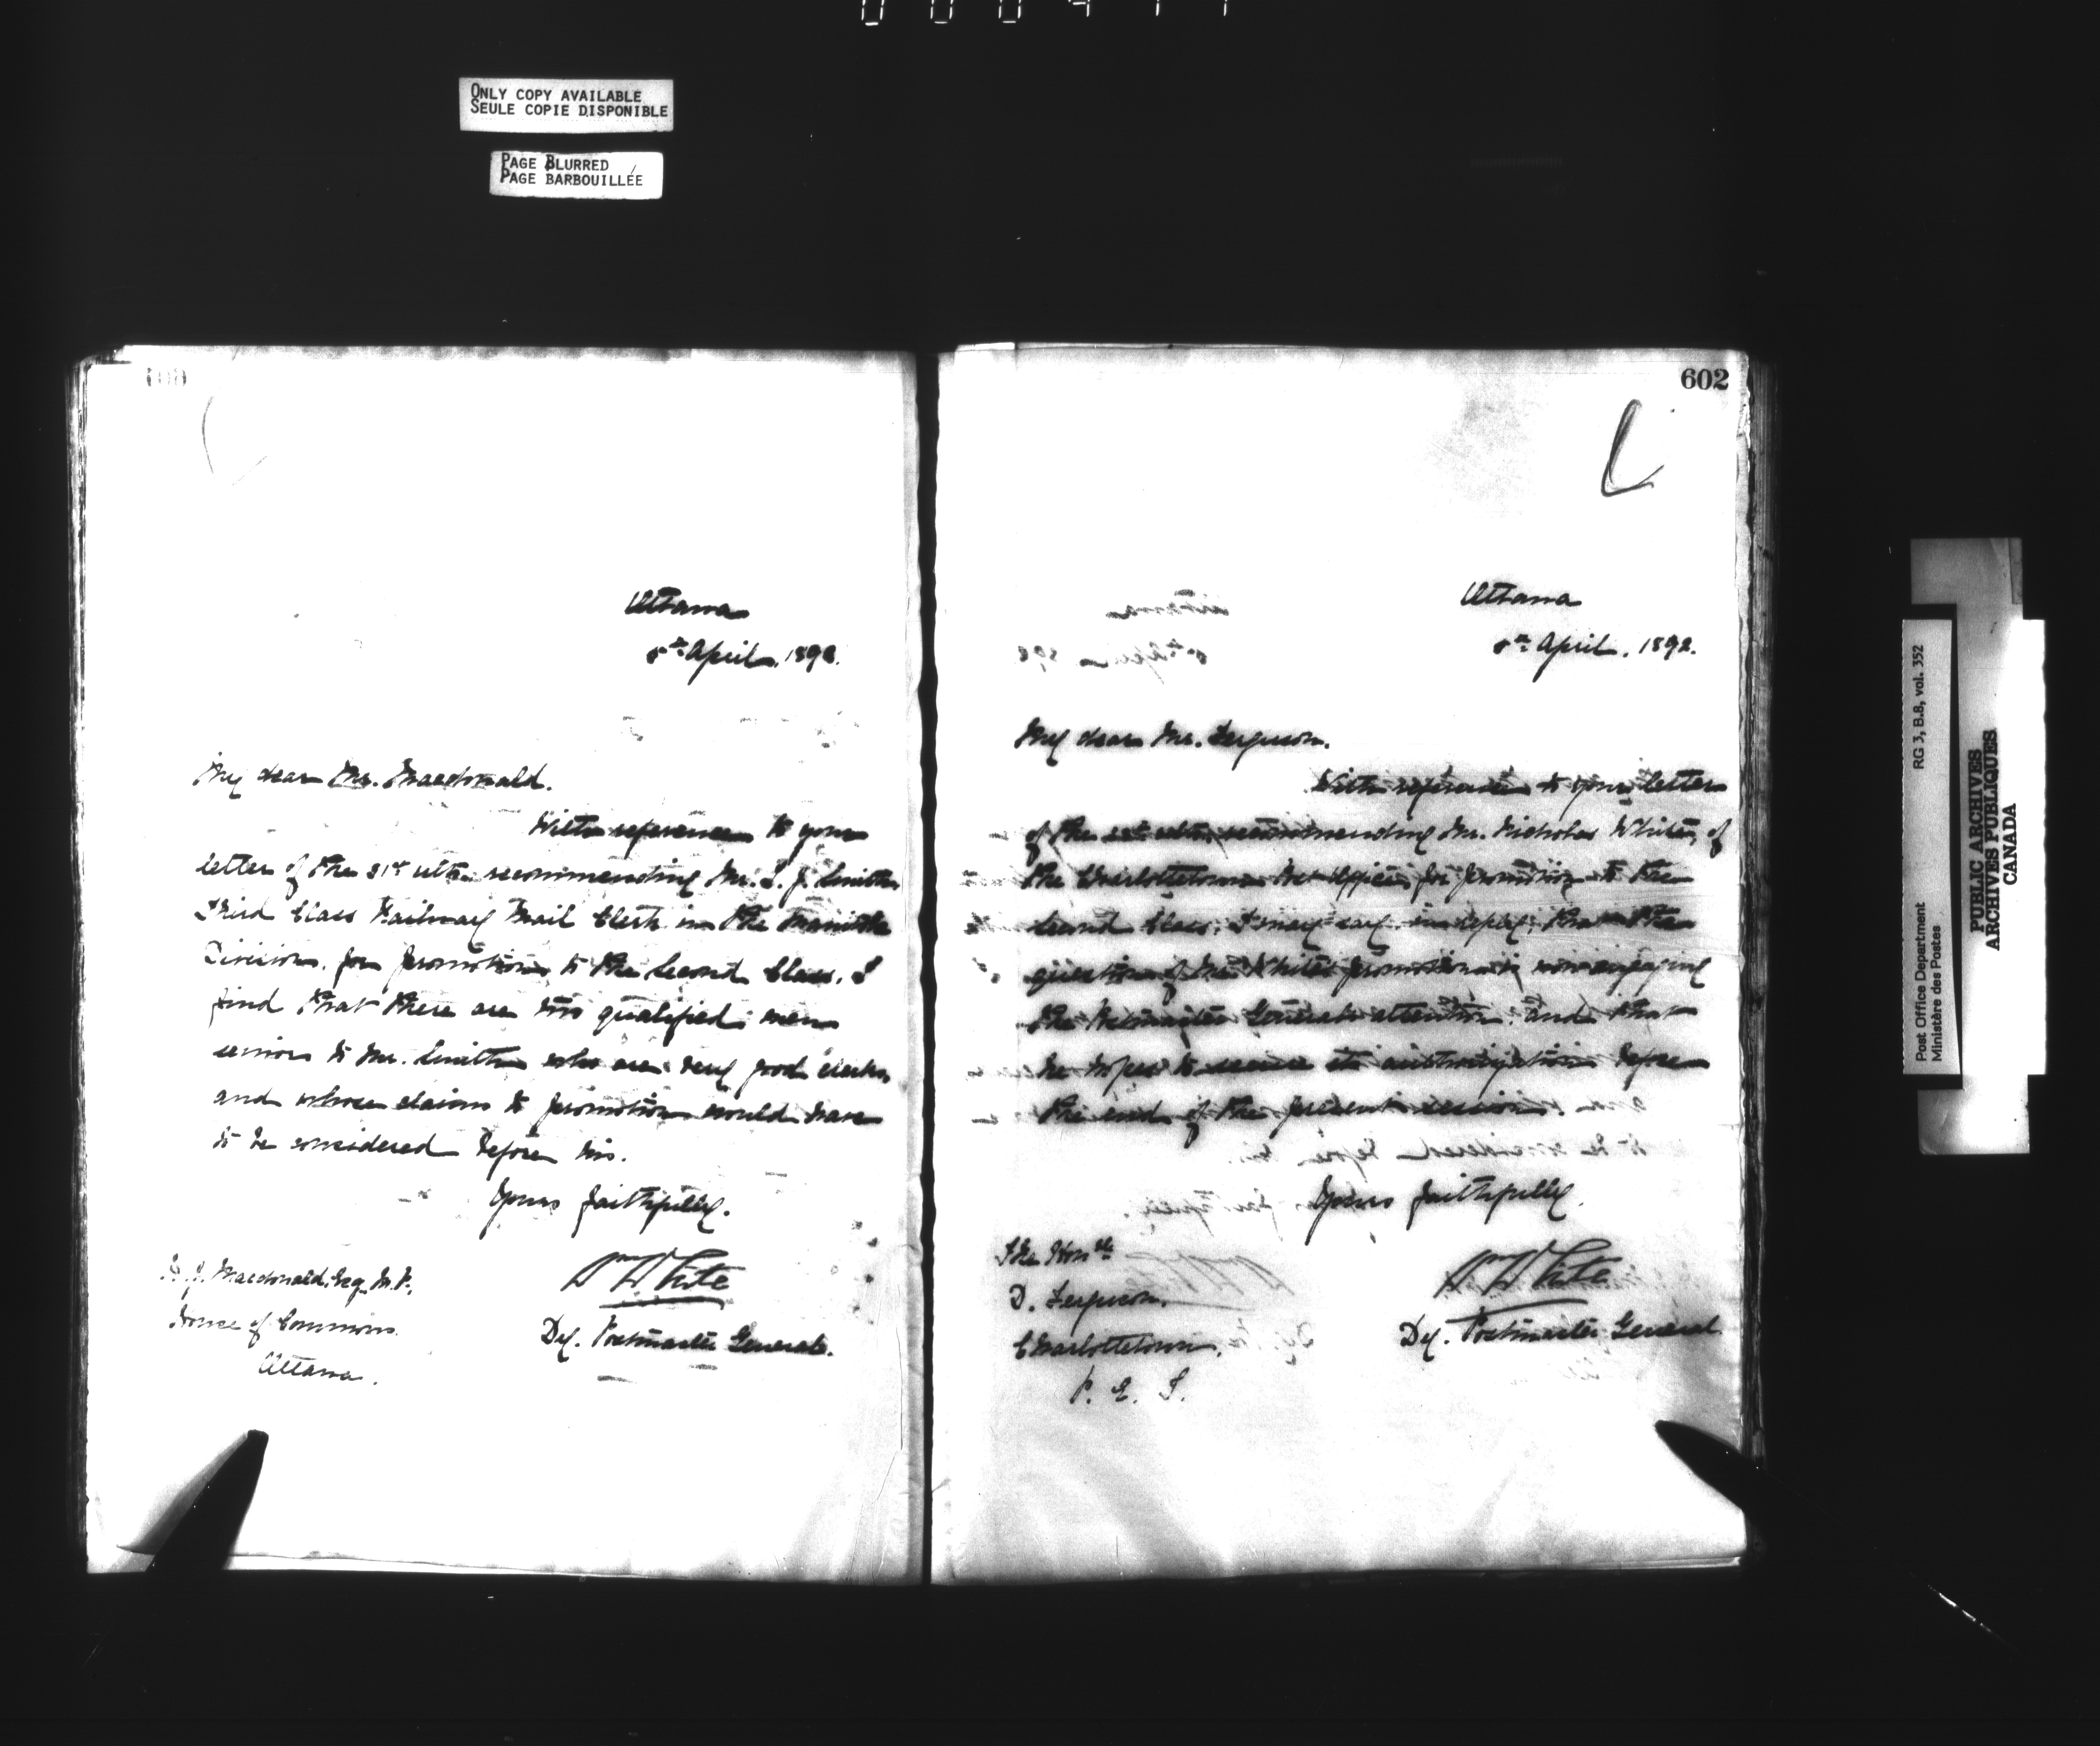 ONLY COPY AVAILABLE
SEULE COPIE DISPONIBLE
PAGE BLURRED
PAGE BARBOUILLÉE
Ottawa
April, 1892.
My dear Mr. Macdonald.
With reference to your
letter of the 31st ulto. recommending Mr. J. Smith
Third Class Railway Mail Clerk in the
Division, for promotion to the Second Class, I
find that there are two qualified men
senior to Mr. Smith who are very good clerks,
and whose claims to promotion would have
to be considered before his.
Yours faithfully.
Wm White
Dy. Postmaster General.
J. Macdonald, Esq. M.P.
House of Commons.
Ottawa.
602
Ottawa
April, 1892.
My dear Mr. Ferguson.
With reference to your letter
of the ulto. recommending Mr. Nicholas White, of
the Charlottetown Post Office, for promotion to the
Second Class, I may say, in reply, that the
question of Mr. White's promotion is now engaging
the Postmaster General's attention: and that
he hopes to secure its authorization before
the end of the present session.
Yours faithfully.
Wm White
Dy. Postmaster General.
The Honble
D. Ferguson,
Charlottetown,
P. E. I.
Post Office Department RG 3, B.8, vol. 352
Ministère des Postes
PUBLIC ARCHIVES
ARCHIVES PUBLIQUES
CANADA